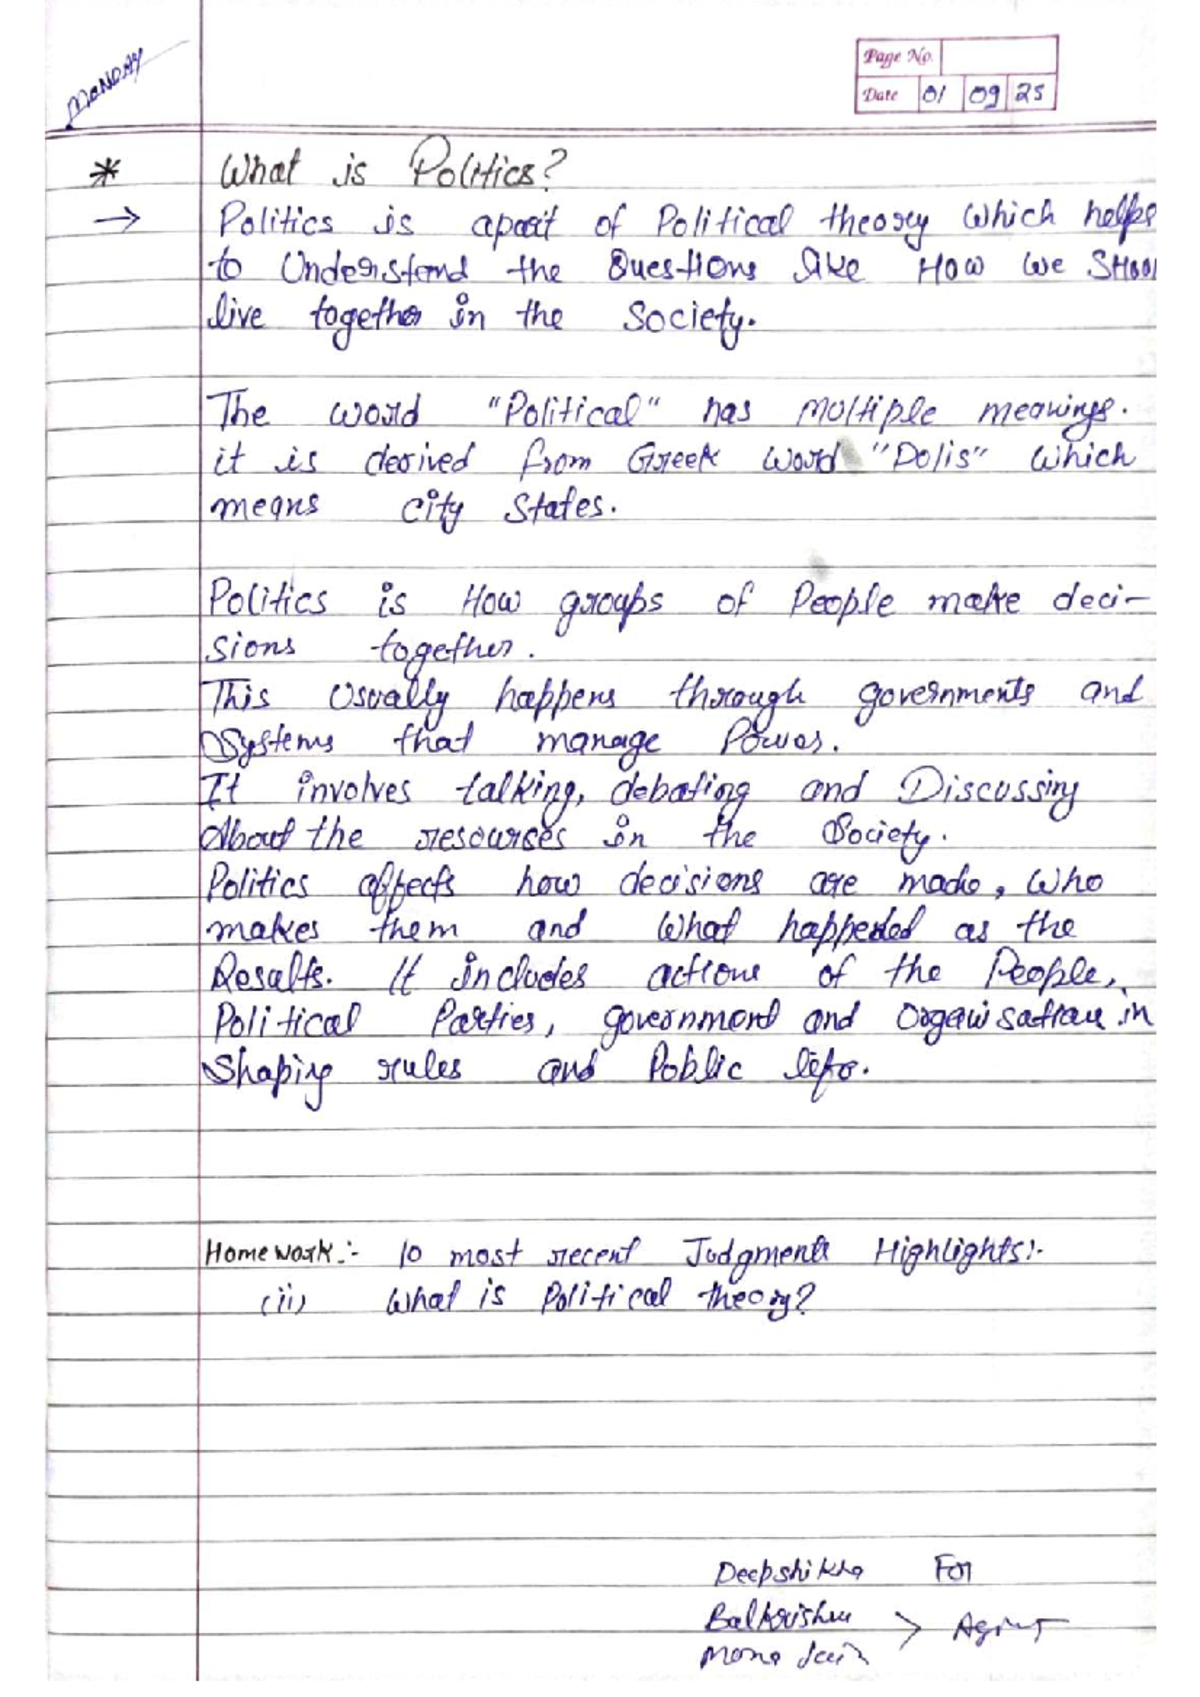 MONDAY
Page No.
Date 01 09 25
* What is Politics?
→ Politics is apart of Political theory which helps
to Understand the Questions like How we Shoul
live together in the Society.
The word "Political" has multiple meanings.
it is derived from Greek word "Polis" which
means city States.
Politics is How groups of People make deci-
sions together.
This Usually happens through governments and
Systems that manage Power.
It involves talking, debating and Discussing
About the resources in the Society.
Politics affects how decisions are made, Who
makes them and what happended as the
Results. It includes actions of the People,
Political Parties, government and Organisation in
Shaping rules and Public life.
Homework:- 10 most recent Judgments Highlights:-
(ii) What is Political theory?
Deepshikha For
Balkrishna > Against
Mona Jain